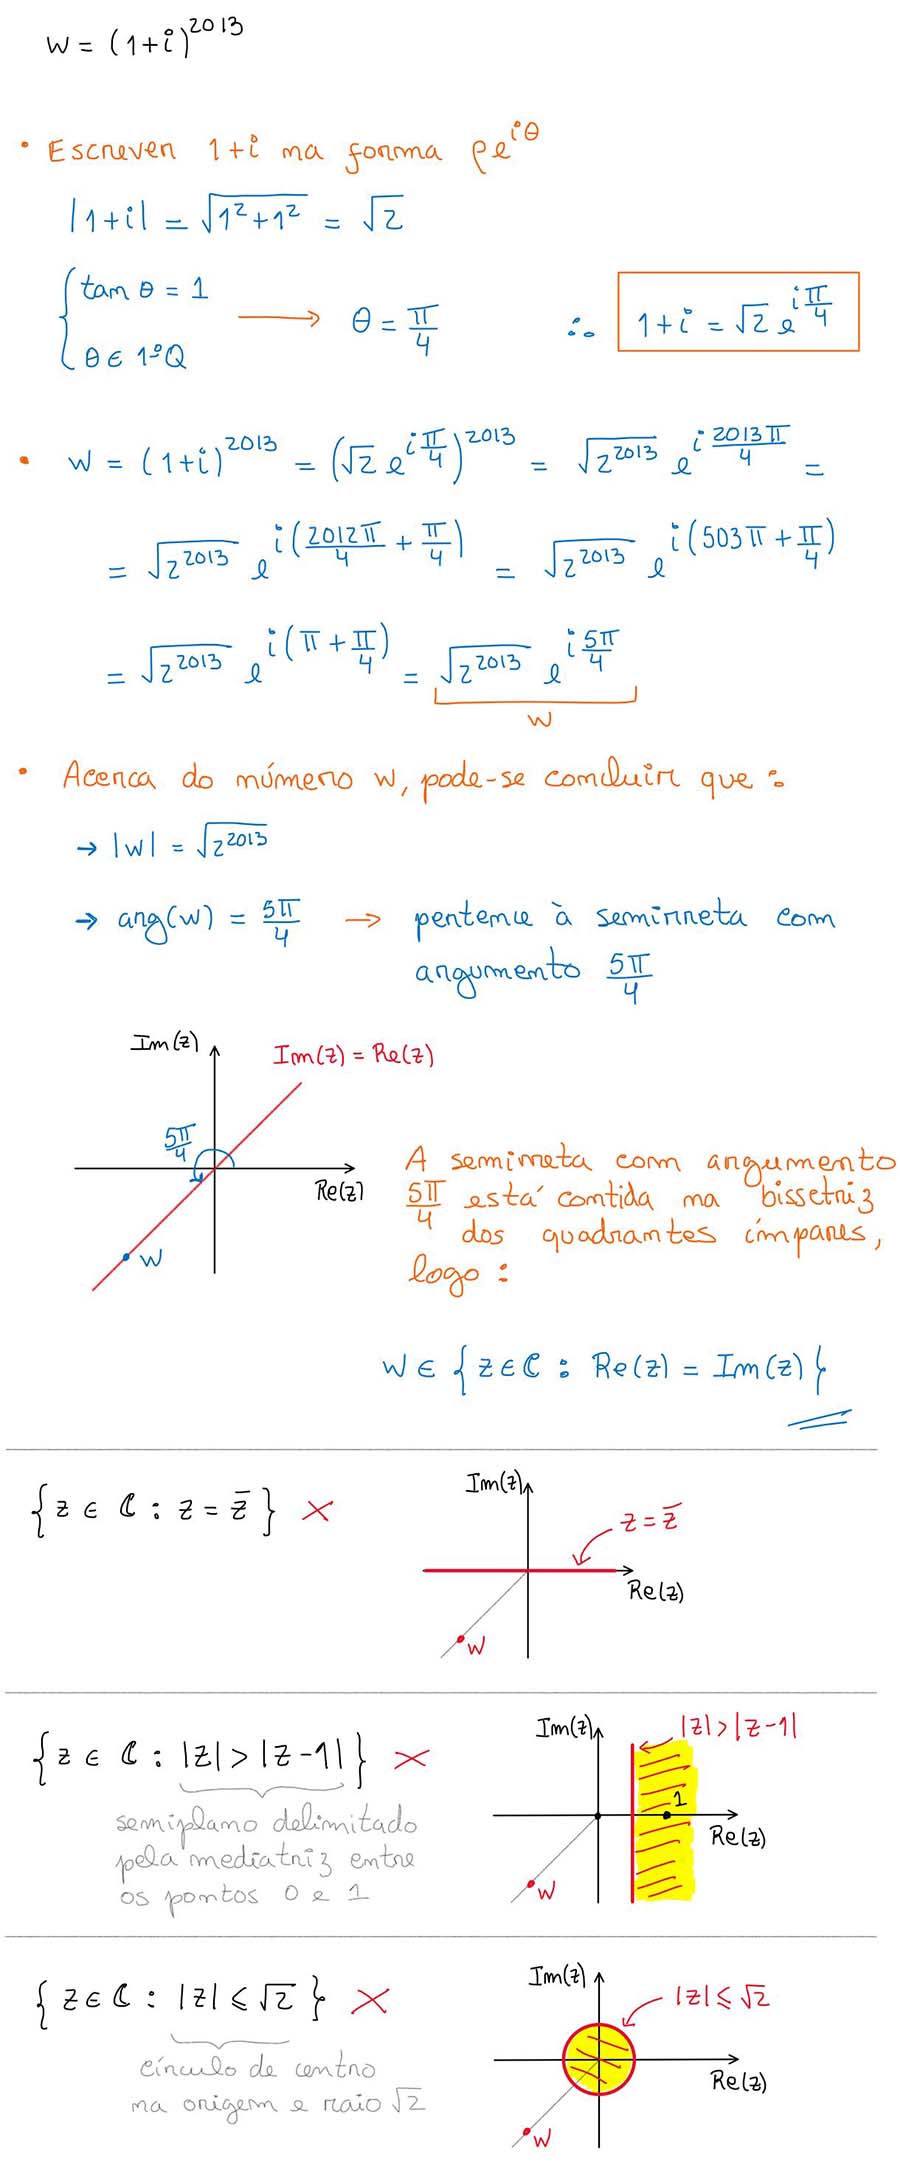 w = (1+i)^2013
• Escrever 1+i na forma ρe^iθ
|1+i| = √(1²+1²) = √2
{ tan θ = 1
θ ∈ 1ºQ → θ = π/4 ∴ 1+i = √2 e^(i π/4)
• w = (1+i)^2013 = (√2 e^(i π/4))^2013 = √(2^2013) e^(i 2013π/4) =
= √(2^2013) e^(i(2012π/4 + π/4)) = √(2^2013) e^(i(503π + π/4))
= √(2^2013) e^(i(π + π/4)) = √(2^2013) e^(i 5π/4)
w
• Acerca do número w, pode-se concluir que :
→ |w| = √(2^2013)
→ arg(w) = 5π/4 → pertence à semirreta com
argumento 5π/4
Im(z)
Im(z) = Re(z)
5π/4
Re(z)
w
A semirreta com argumento
5π/4 está contida na bissetriz
dos quadrantes ímpares,
logo :
w ∈ {z ∈ ℂ : Re(z) = Im(z)}
{z ∈ ℂ : z = z̅} ×
Im(z)
z = z̅
Re(z)
w
{z ∈ ℂ : |z| > |z-1|} ×
semiplano delimitado
pela mediatriz entre
os pontos 0 e 1
Im(z)
|z| > |z-1|
1
Re(z)
w
{z ∈ ℂ : |z| ⩽ √2} ×
círculo de centro
na origem e raio √2
Im(z)
|z| ⩽ √2
Re(z)
w